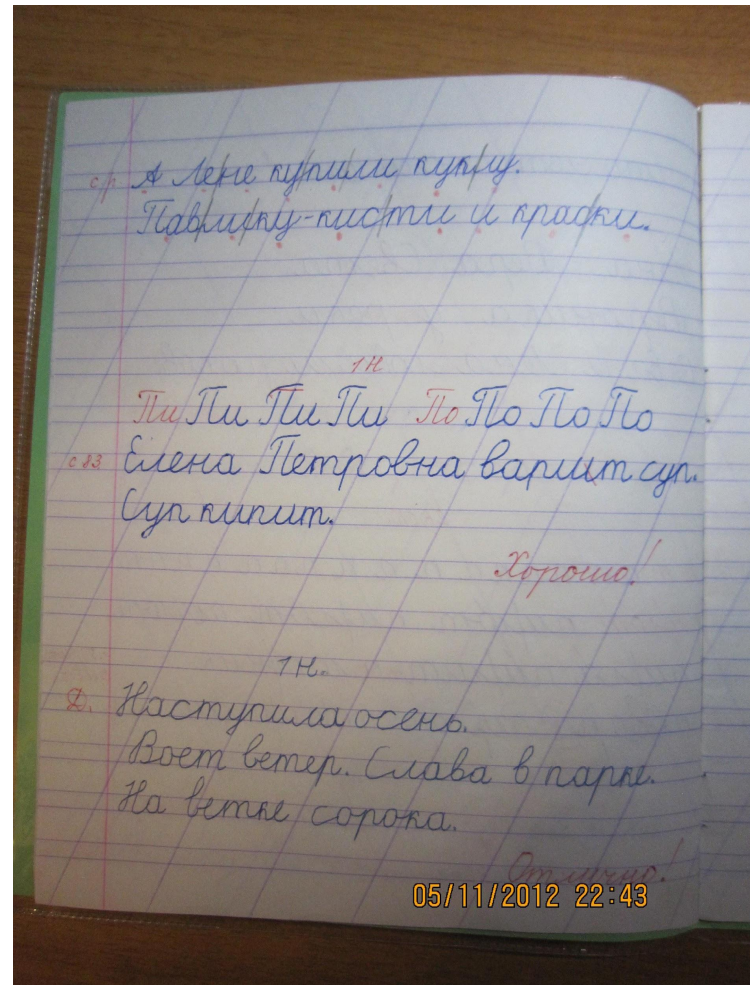 с р А Лене купили куклу.
Павлику-кисти и краски.
1 Н
Пи Пи Пи Пи По По По По
с 83 Елена Петровна варит суп.
Суп кипит.
Хорошо!
1 Н.
Д. Наступила осень.
Воет ветер. Слава в парке.
На ветке сорока.
Отлично!
05/11/2012 22:43